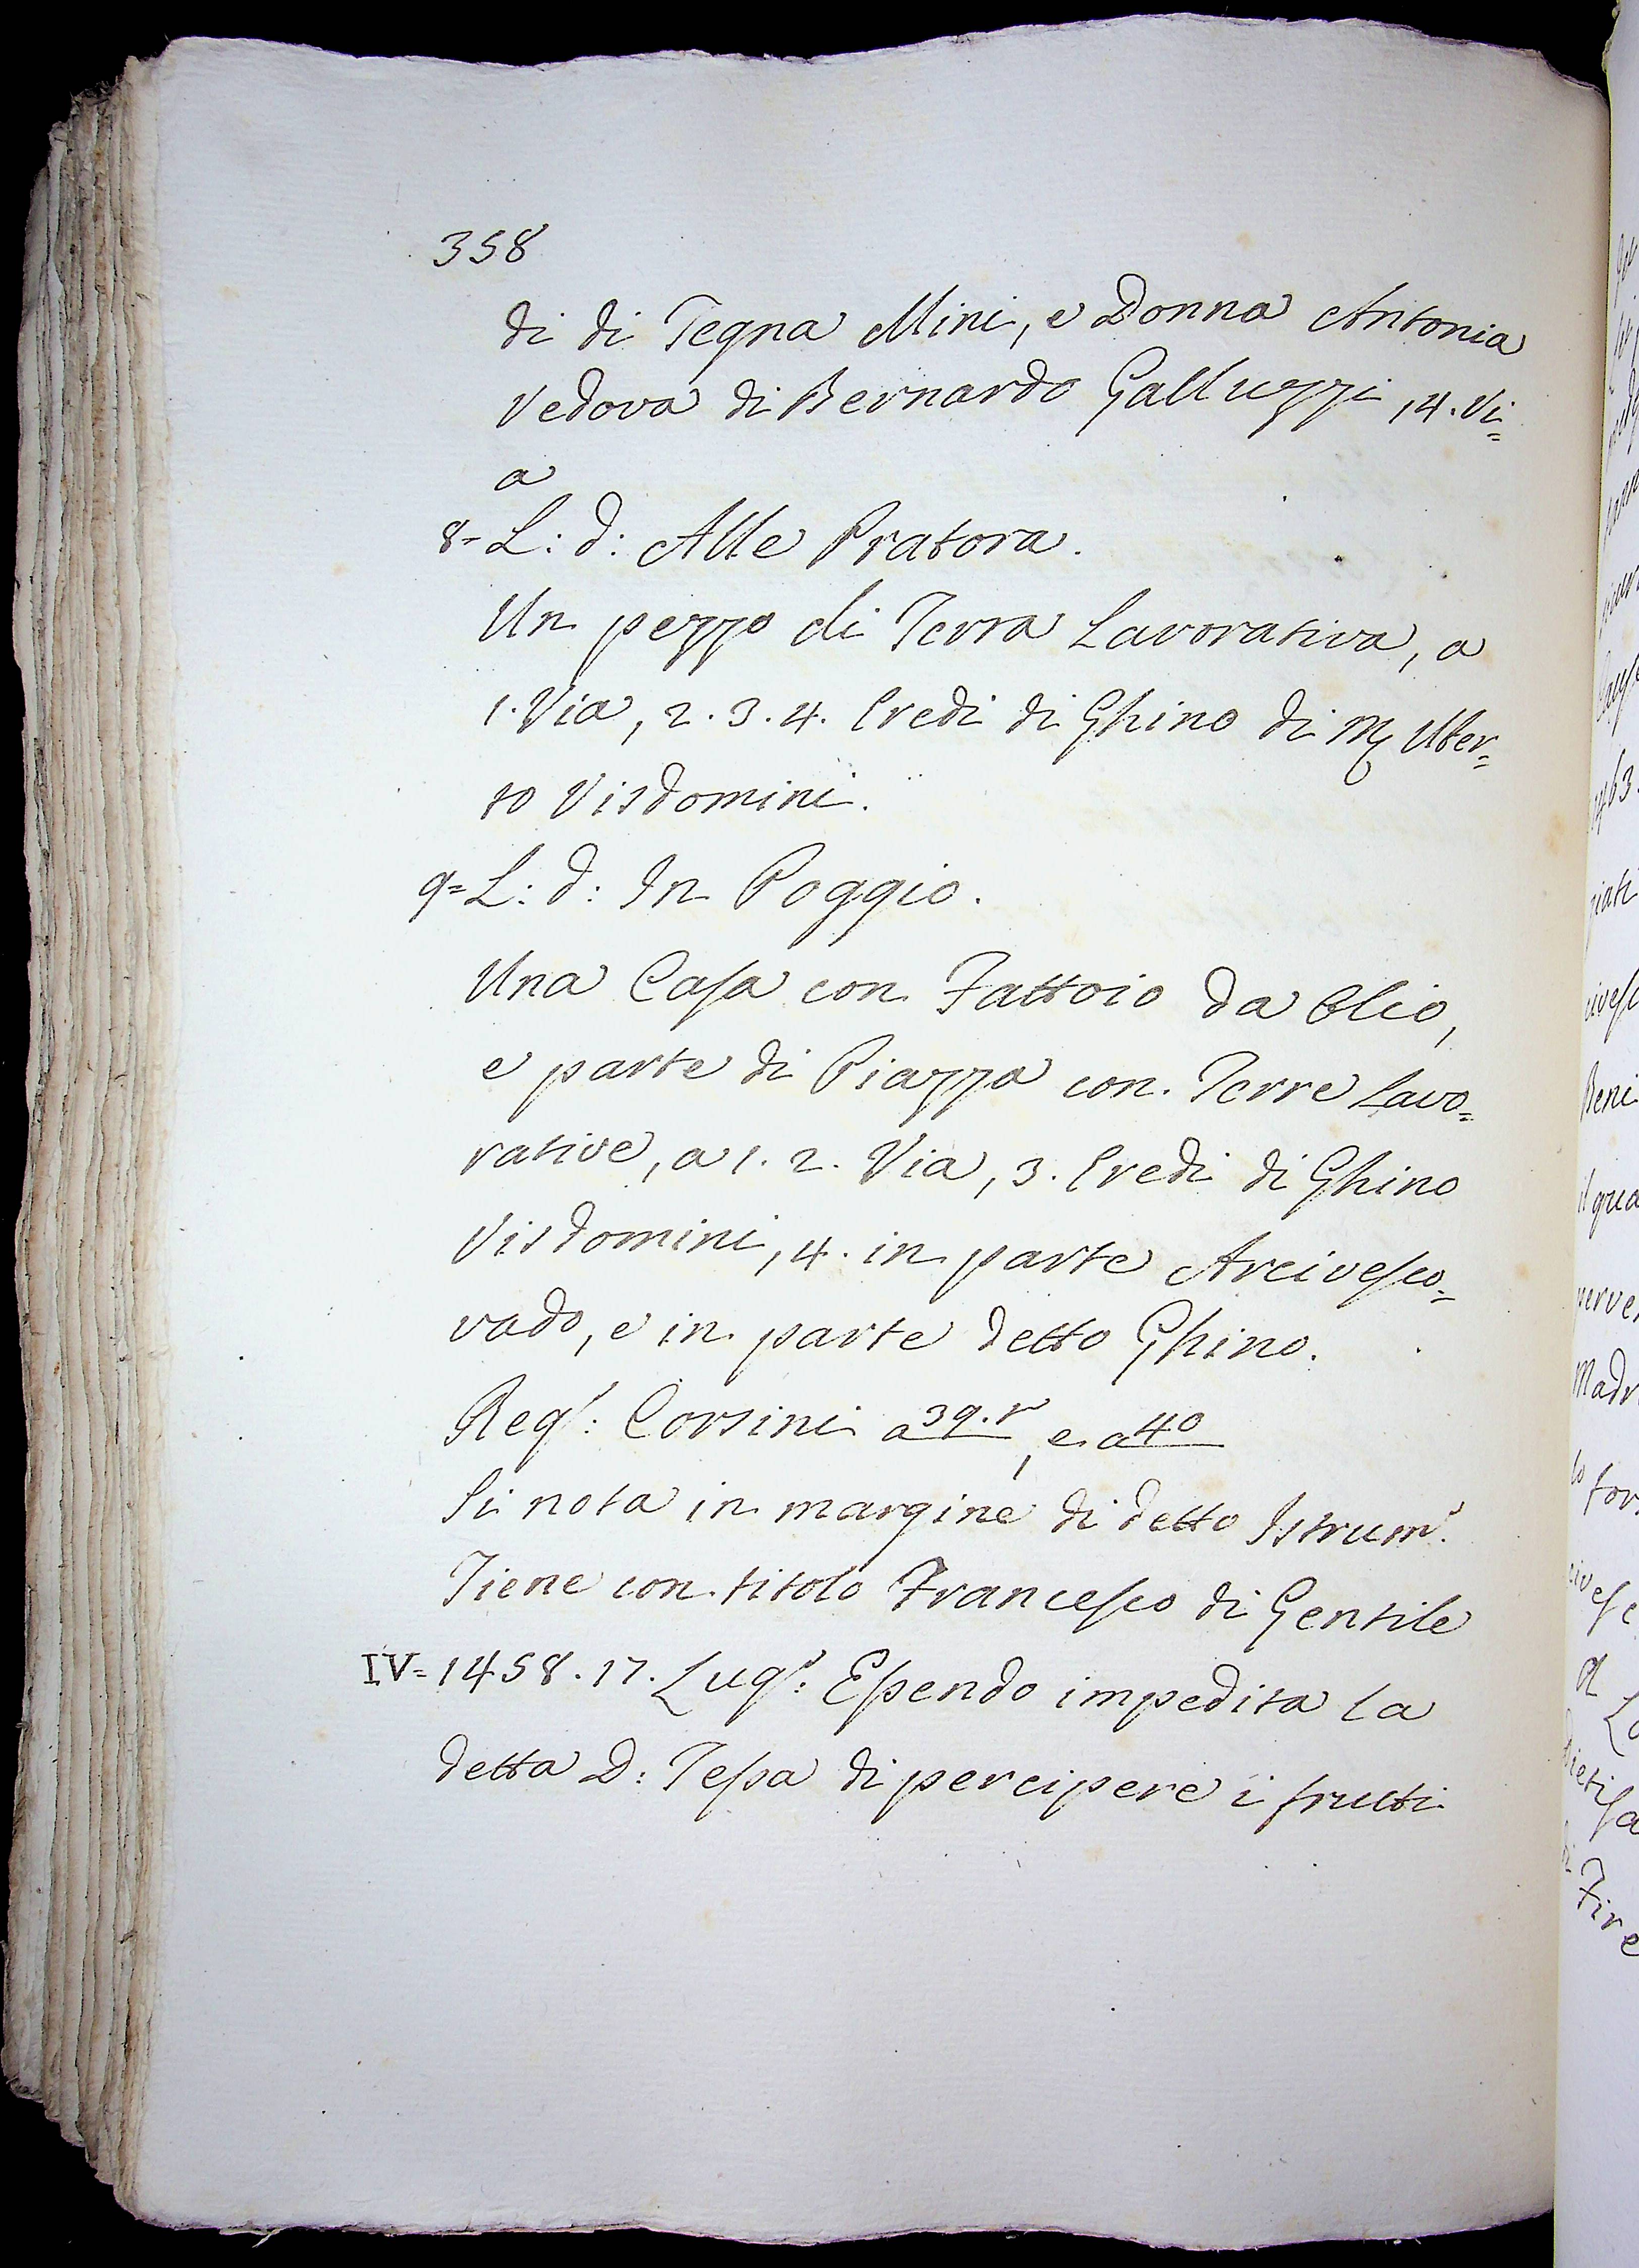 358
di di Tegna Mini, e Donna Antonia
Vedova di Bernardo Galluzzi, 4. Vi=
a
8= L: d: Alle Pratora.
Un pezzo di Terra Lavorativa, a
1. Via, 2. 3. 4. Eredi di Ghino di M Uber=
to Visdomini.
9= L: d: In Poggio.
Una Casa con Fattoio da Olio,
e parte di Piazza con Terre Lavo=
rative, a 1. 2. Via, 3. Eredi di Ghino
Visdomini, 4. in parte Arcivesco=
vado, e in parte detto Ghino.
Regº: Corsini a 39. r, e a 40
Si nota in margine di detto Istrumº.
Tiene con titolo Francesco di Gentile
IV= 1458. 17. Lugº: Essendo impedita la
detta D: Tessa di percipere i frutti